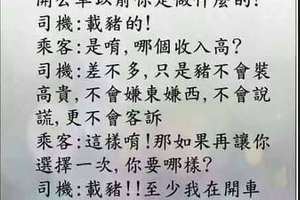 開公車以前你是做什麼的?
司機:載豬的!
乘客:是唷,哪個收入高?
司機:差不多,只是豬不會裝
高貴,不會嫌東嫌西,不會說
謊,更不會客訴
乘客:這樣唷!那如果再讓你
選擇一次,你要哪樣?
司機:載豬!!至少我在開車